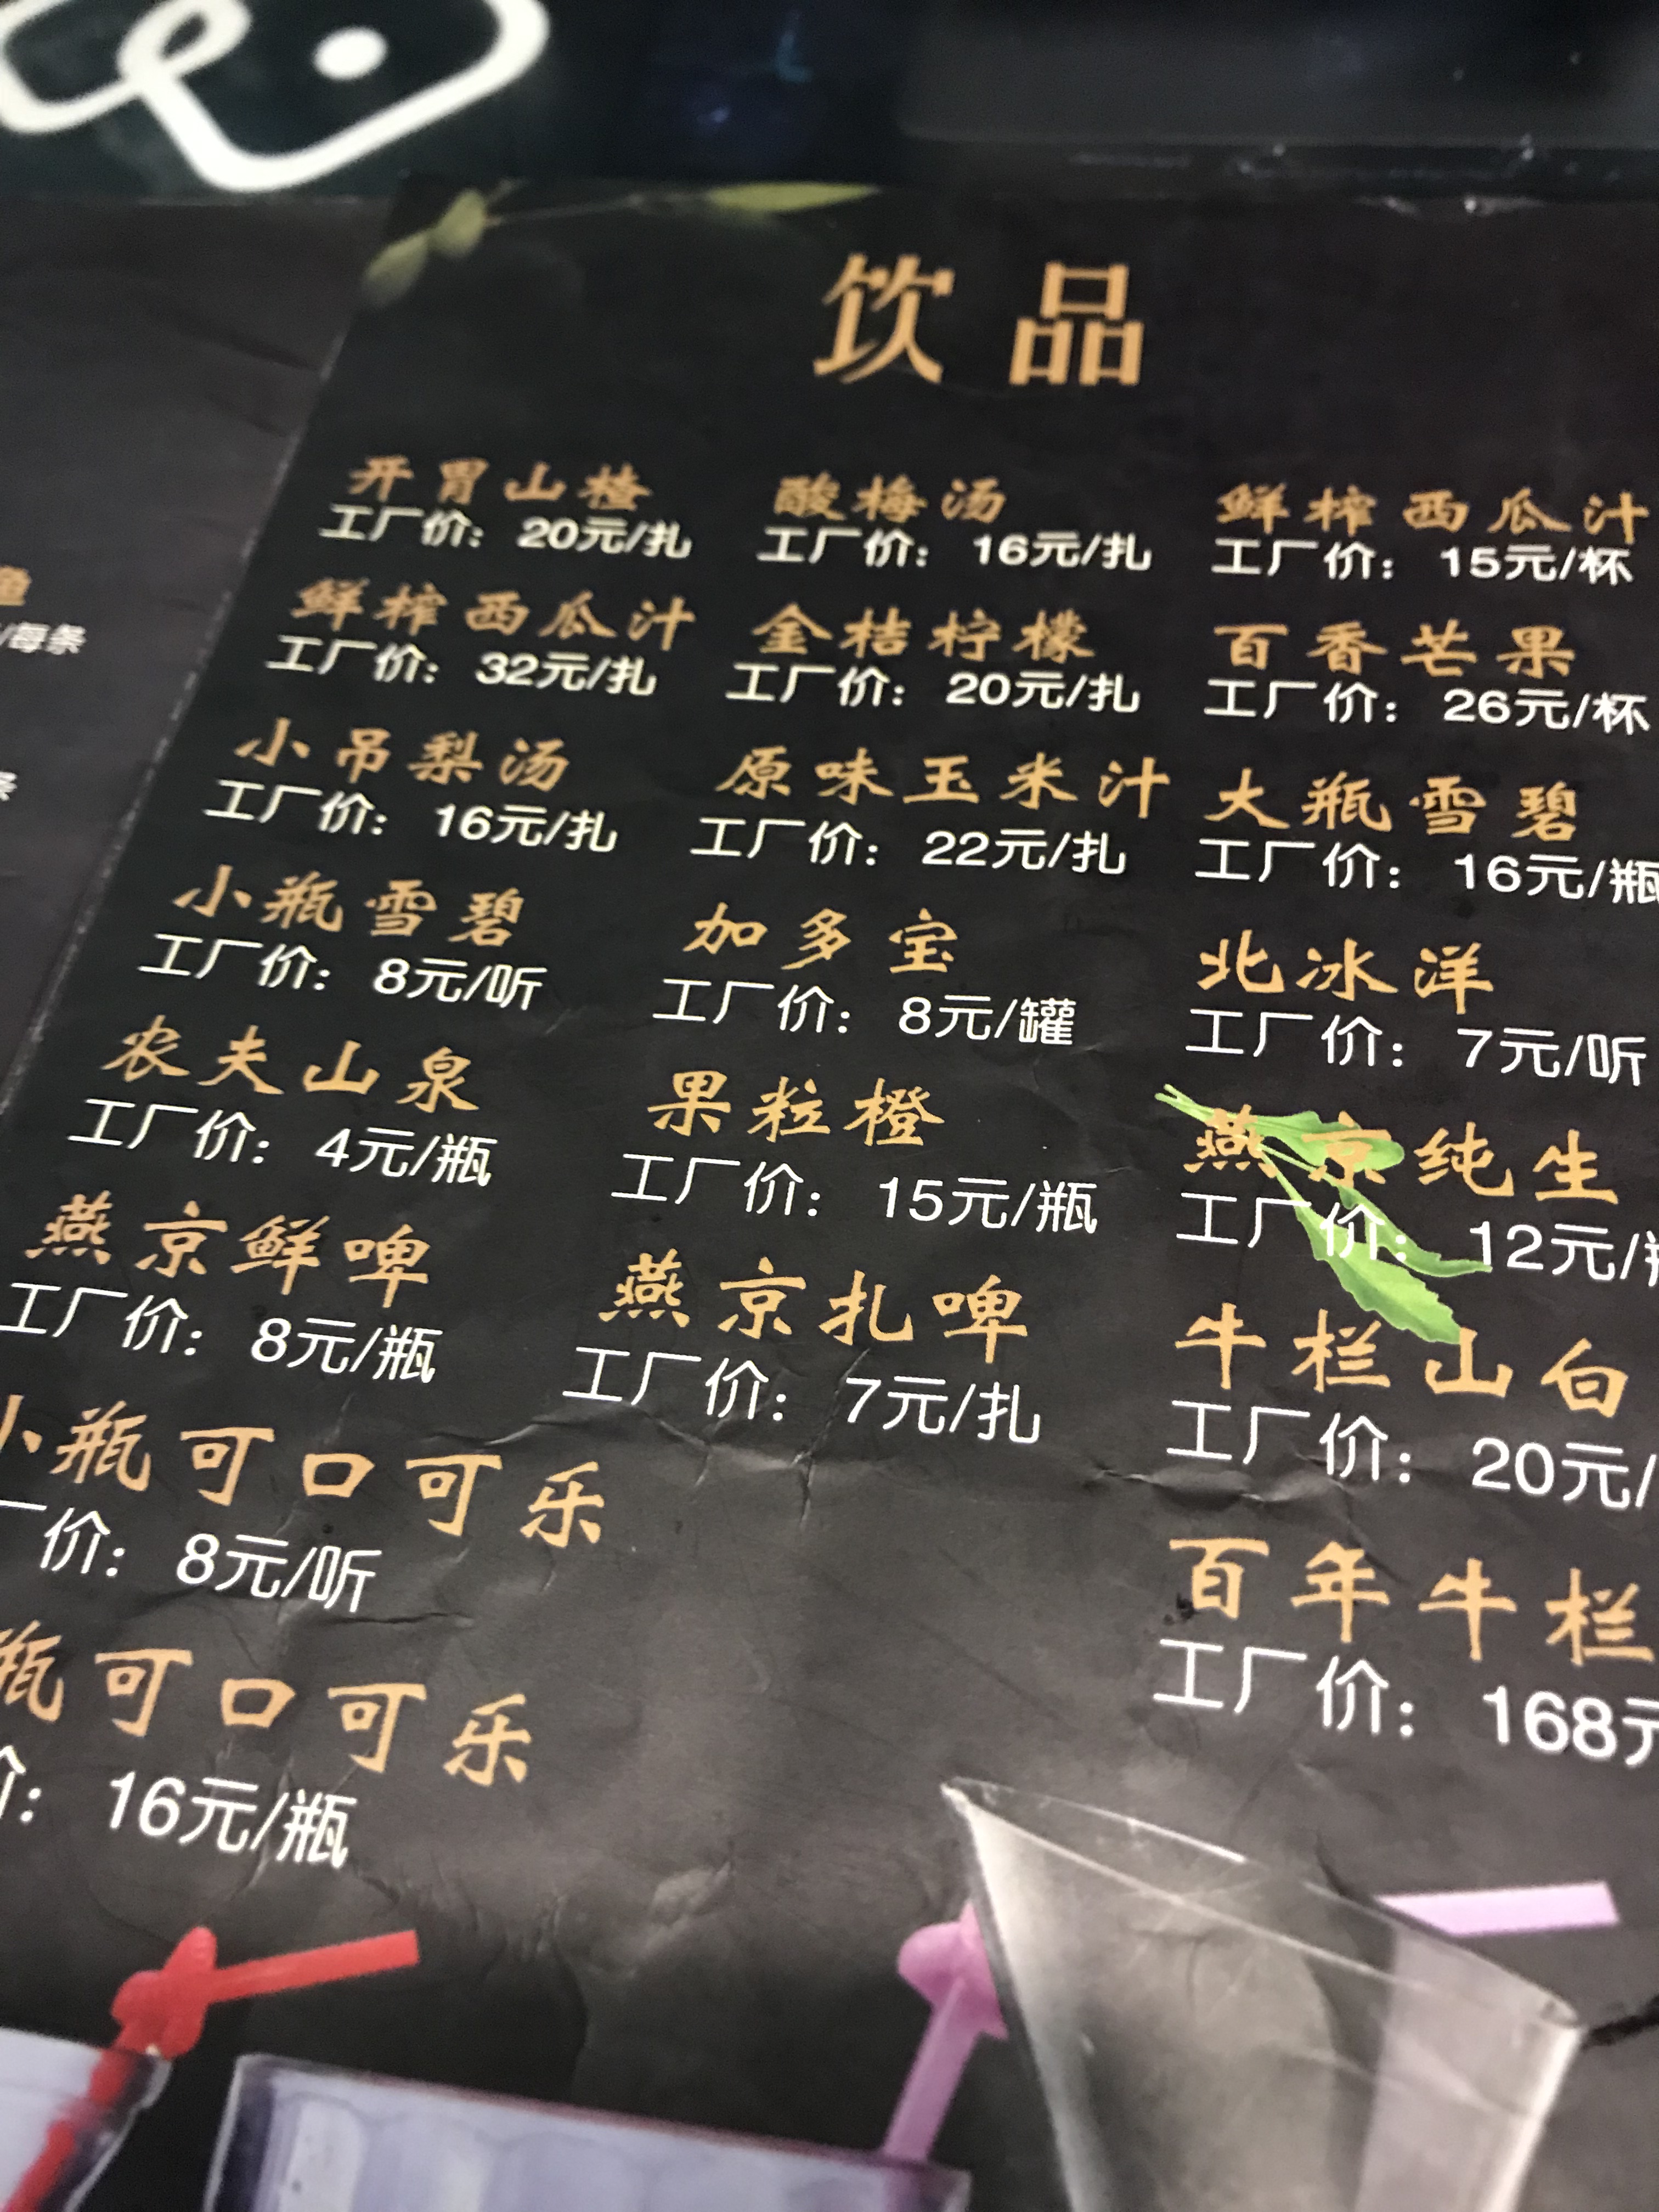 饮品
开胃山楂 酸梅汤 鲜榨西瓜汁
工厂价：20元/扎 工厂价：16元/扎 工厂价：15元/杯
鲜榨西瓜汁 金桔柠檬 百香芒果
工厂价：32元/扎 工厂价：20元/扎 工厂价：26元/杯
小吊梨汤 原味玉米汁 大瓶雪碧
工厂价：16元/扎 工厂价：22元/扎 工厂价：16元/瓶
小瓶雪碧 加多宝 北冰洋
工厂价：8元/听 工厂价：8元/罐 工厂价：7元/听
农夫山泉 果粒橙 燕京纯生
工厂价：4元/瓶 工厂价：15元/瓶 工厂价：12元/
燕京鲜啤 燕京扎啤 牛栏山白
工厂价：8元/瓶 工厂价：7元/扎 工厂价：20元/
小瓶可口可乐 百年牛栏
厂价：8元/听 工厂价：168元
瓶可口可乐
价：16元/瓶
鱼
/每条
条